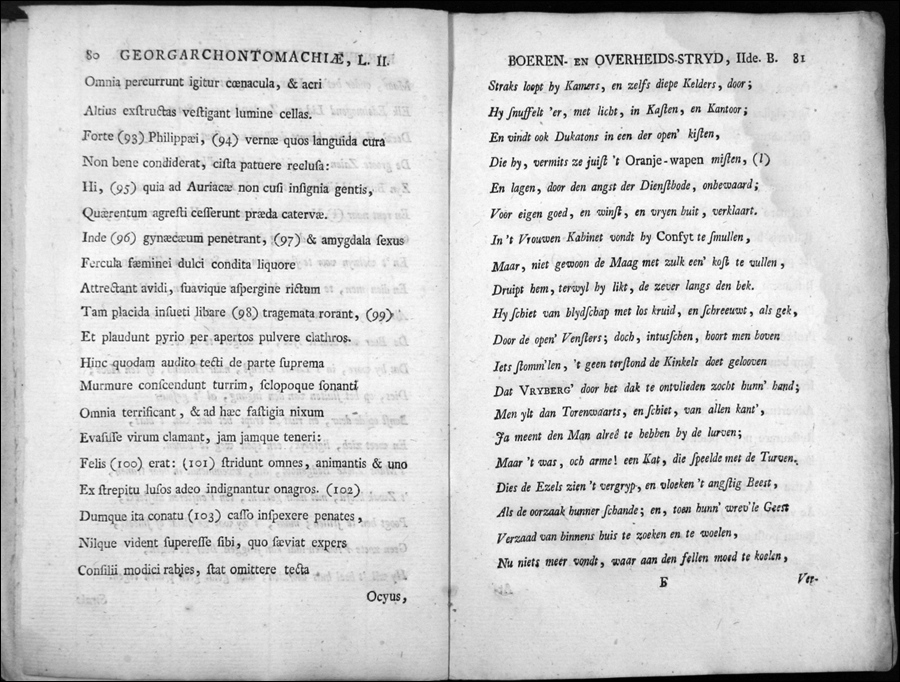 80 GEORGARCHONTOMACHIÆ, L. II.
Omnia percurrunt igitur cœnacula, & acri
Altius exſtructas veſtigant lumine cellas.
Forte (93) Philippæi, (94) vernæ quos languida cura
Non bene condiderat, ciſta patuere recluſa:
Hi, (95) quia ad Auriacæ non cuſi inſignia gentis,
Quærentum agreſti ceſſerunt præda catervæ.
Inde (96) gynæcæum penetrant, (97) & amygdala ſexus
Fercula fæminei dulci condita liquore
Attrectant avidi, ſuavique aſpergine rictum
Tam placida inſueti libare (98) tragemata rorant, (99)
Et plaudunt pyrio per apertos pulvere clathros.
Hinc quodam audito tecti de parte ſuprema
Murmure conſcendunt turrim, ſclopoque ſonanti
Omnia terrificant, & ad hæc faſtigia nixum
Evaſiſſe virum clamant, jam jamque teneri:
Felis (100) erat: (101) ſtridunt omnes, animantis & uno
Ex ſtrepitu luſos adeo indignantur onagros. (102)
Dumque ita conatu (103) caſſo inſpexere penates,
Nilque vident ſupereſſe ſibi, quo ſæviat expers
Conſilii modici rabies, ſtat omittere tecta
Ocyus,
BOEREN- EN OVERHEIDS-STRYD, IIde. B. 81
Straks loopt by Kamers, en zelfs diepe Kelders, door;
Hy ſnuffelt 'er, met licht, in Kaſten, en Kantoor;
En vindt ook Dukatons in een der open' kiſten,
Die hy, vermits ze juiſt 't Oranje-wapen miſten, (1)
En lagen, door den angst der Dienſtbode, onbewaard;
Voor eigen goed, en winſt, en vryen buit, verklaart.
In 't Vrouwen Kabinet vondt hy Confyt te ſmullen,
Maar, niet gewoon de Maag met zulk een' koſt te vullen,
Druipt hem, terwyl hy likt, de zever langs den bek.
Hy ſchiet van blydſchap met los kruid, en ſchreeuwt, als gek,
Door de open' Venſters; doch, intusſchen, hoort men boven
Iets ſtomm'len, 't geen terſtond de Kinkels doet gelooven
Dat VRYBERG' door het dak te ontvlieden zocht hunn' hand;
Men ylt dan Torenwaarts, en ſchiet, van allen kant',
Ja meent den Man alreê te hebben by de lurven;
Maar 't was, och arme! een Kat, die ſpeelde met de Turven.
Dies de Ezels zien 't vergryp, en vloeken 't angſtig Beest,
Als de oorzaak hunner ſchande; en, toen hunn' wrev'le Geest
Verzaad van binnens huis te zoeken en te woelen,
Nu niets meer vondt, waar aan den fellen moed te koelen,
Ver-